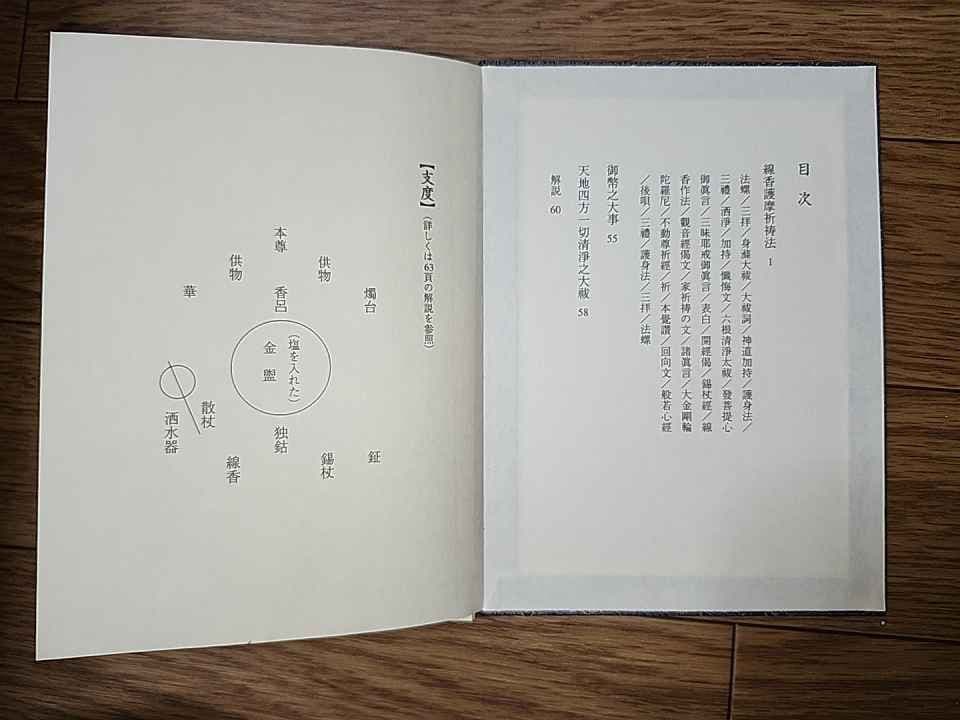 目次
線香護摩祈祷法 1
法螺／三拝／身滌大祓／大祓詞／神道加持／護身法／
三禮／洒淨／加持／懺悔文／六根清淨太祓／發菩提心
御眞言／三昧耶戒御眞言／表白／開經偈／錫杖經／線
香作法／觀音經偈文／家祈祷の文／諸眞言／大金剛輪
陀羅尼／不動尊祈經／祈／本覺讚／回向文／般若心經
／後唄／三禮／護身法／三拝／法螺
御幣之大事 55
天地四方一切清淨之大祓 58
解説 60
【支度】（詳しくは63頁の解説を参照）
燭台
供物
本尊
香呂
供物
華
（塩を入れた）
金盥
鉦
錫杖
独鈷
線香
散杖
洒水器